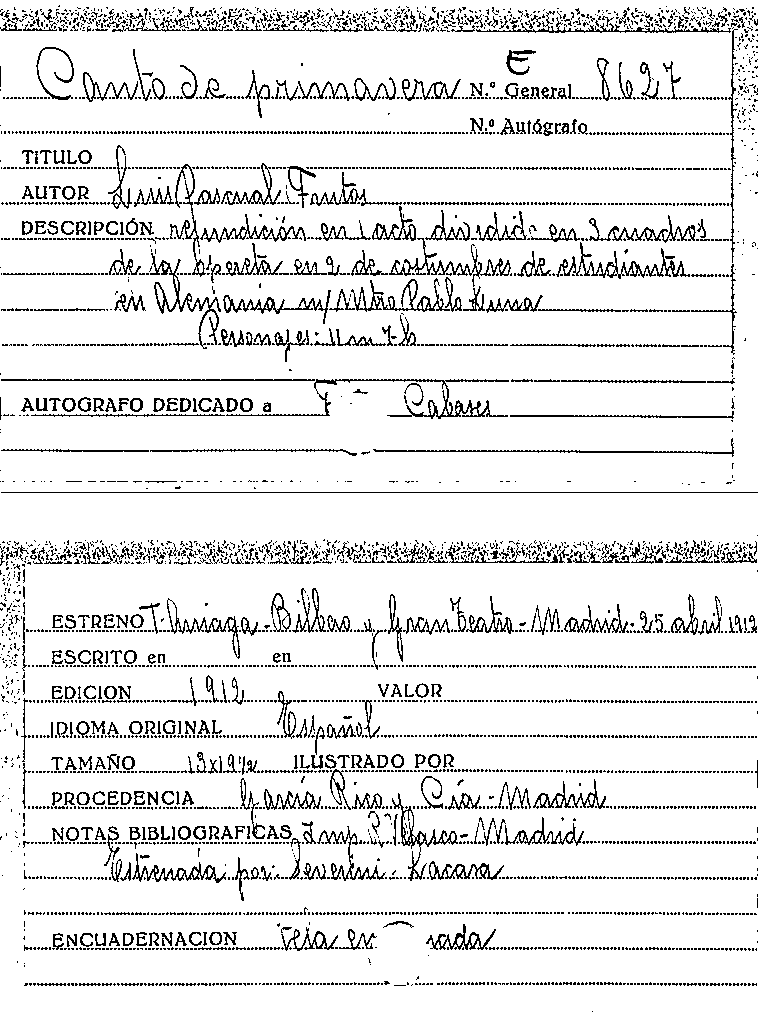 Canto de primavera N.º General E 8627
N.º Autógrafo
TITULO
AUTOR Luis Pascual Frutos
DESCRIPCIÓN refundición en 1 acto dividido en 3 cuadros
de la opereta en 2 de costumbres de estudiantes
en Alemania m/ Mtro Pablo Luna
Personajes: 11 m 7 h
AUTOGRAFO DEDICADO a F Cabases
ESTRENO T. Arriaga - Bilbao y Gran Teatro - Madrid - 25 abril 1912
ESCRITO en en
EDICION 1912 VALOR
IDIOMA ORIGINAL Español
TAMAÑO 13x19½ ILUSTRADO POR
PROCEDENCIA García Rico y Cía - Madrid
NOTAS BIBLIOGRAFICAS Imp. R. Velasco - Madrid
Estrenada por: Severini - Lacasa
ENCUADERNACION Tela